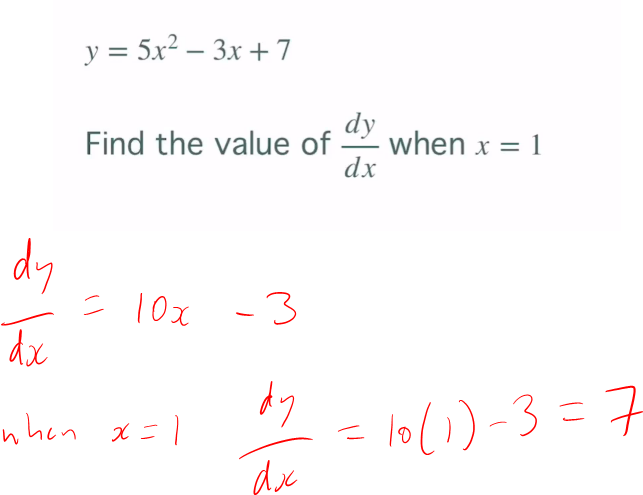 y = 5x² − 3x + 7
Find the value of dy/dx when x = 1
dy/dx = 10x - 3
when x=1 dy/dx = 10(1)-3 = 7